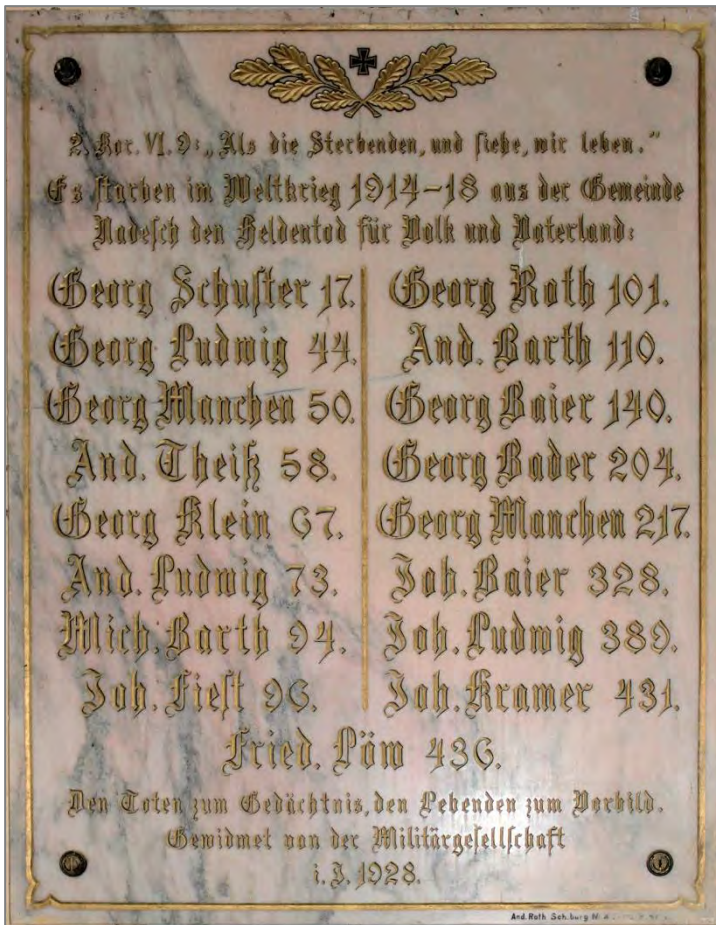 2. Kor. VI. 9: „Als die Sterbenden, und siehe, wir leben."
Es starben im Weltkrieg 1914-18 aus der Gemeinde
Nadesch den Heldentod für Volk und Vaterland:
Georg Schuster 17.
Georg Ludwig 44.
Georg Manchen 50.
And. Theiß 58.
Georg Klein 67.
And. Ludwig 73.
Mich. Barth 94.
Joh. Fiest 96.
Georg Roth 101.
And. Barth 110.
Georg Baier 140.
Georg Bader 204.
Georg Manchen 217.
Joh. Baier 328.
Joh. Ludwig 389.
Joh. Kramer 431.
Fried. Löw 436.
Den Toten zum Gedächtnis, den Lebenden zum Vorbild.
Gewidmet von der Militärgesellschaft
i. J. 1928.
And. Roth Sch.burg